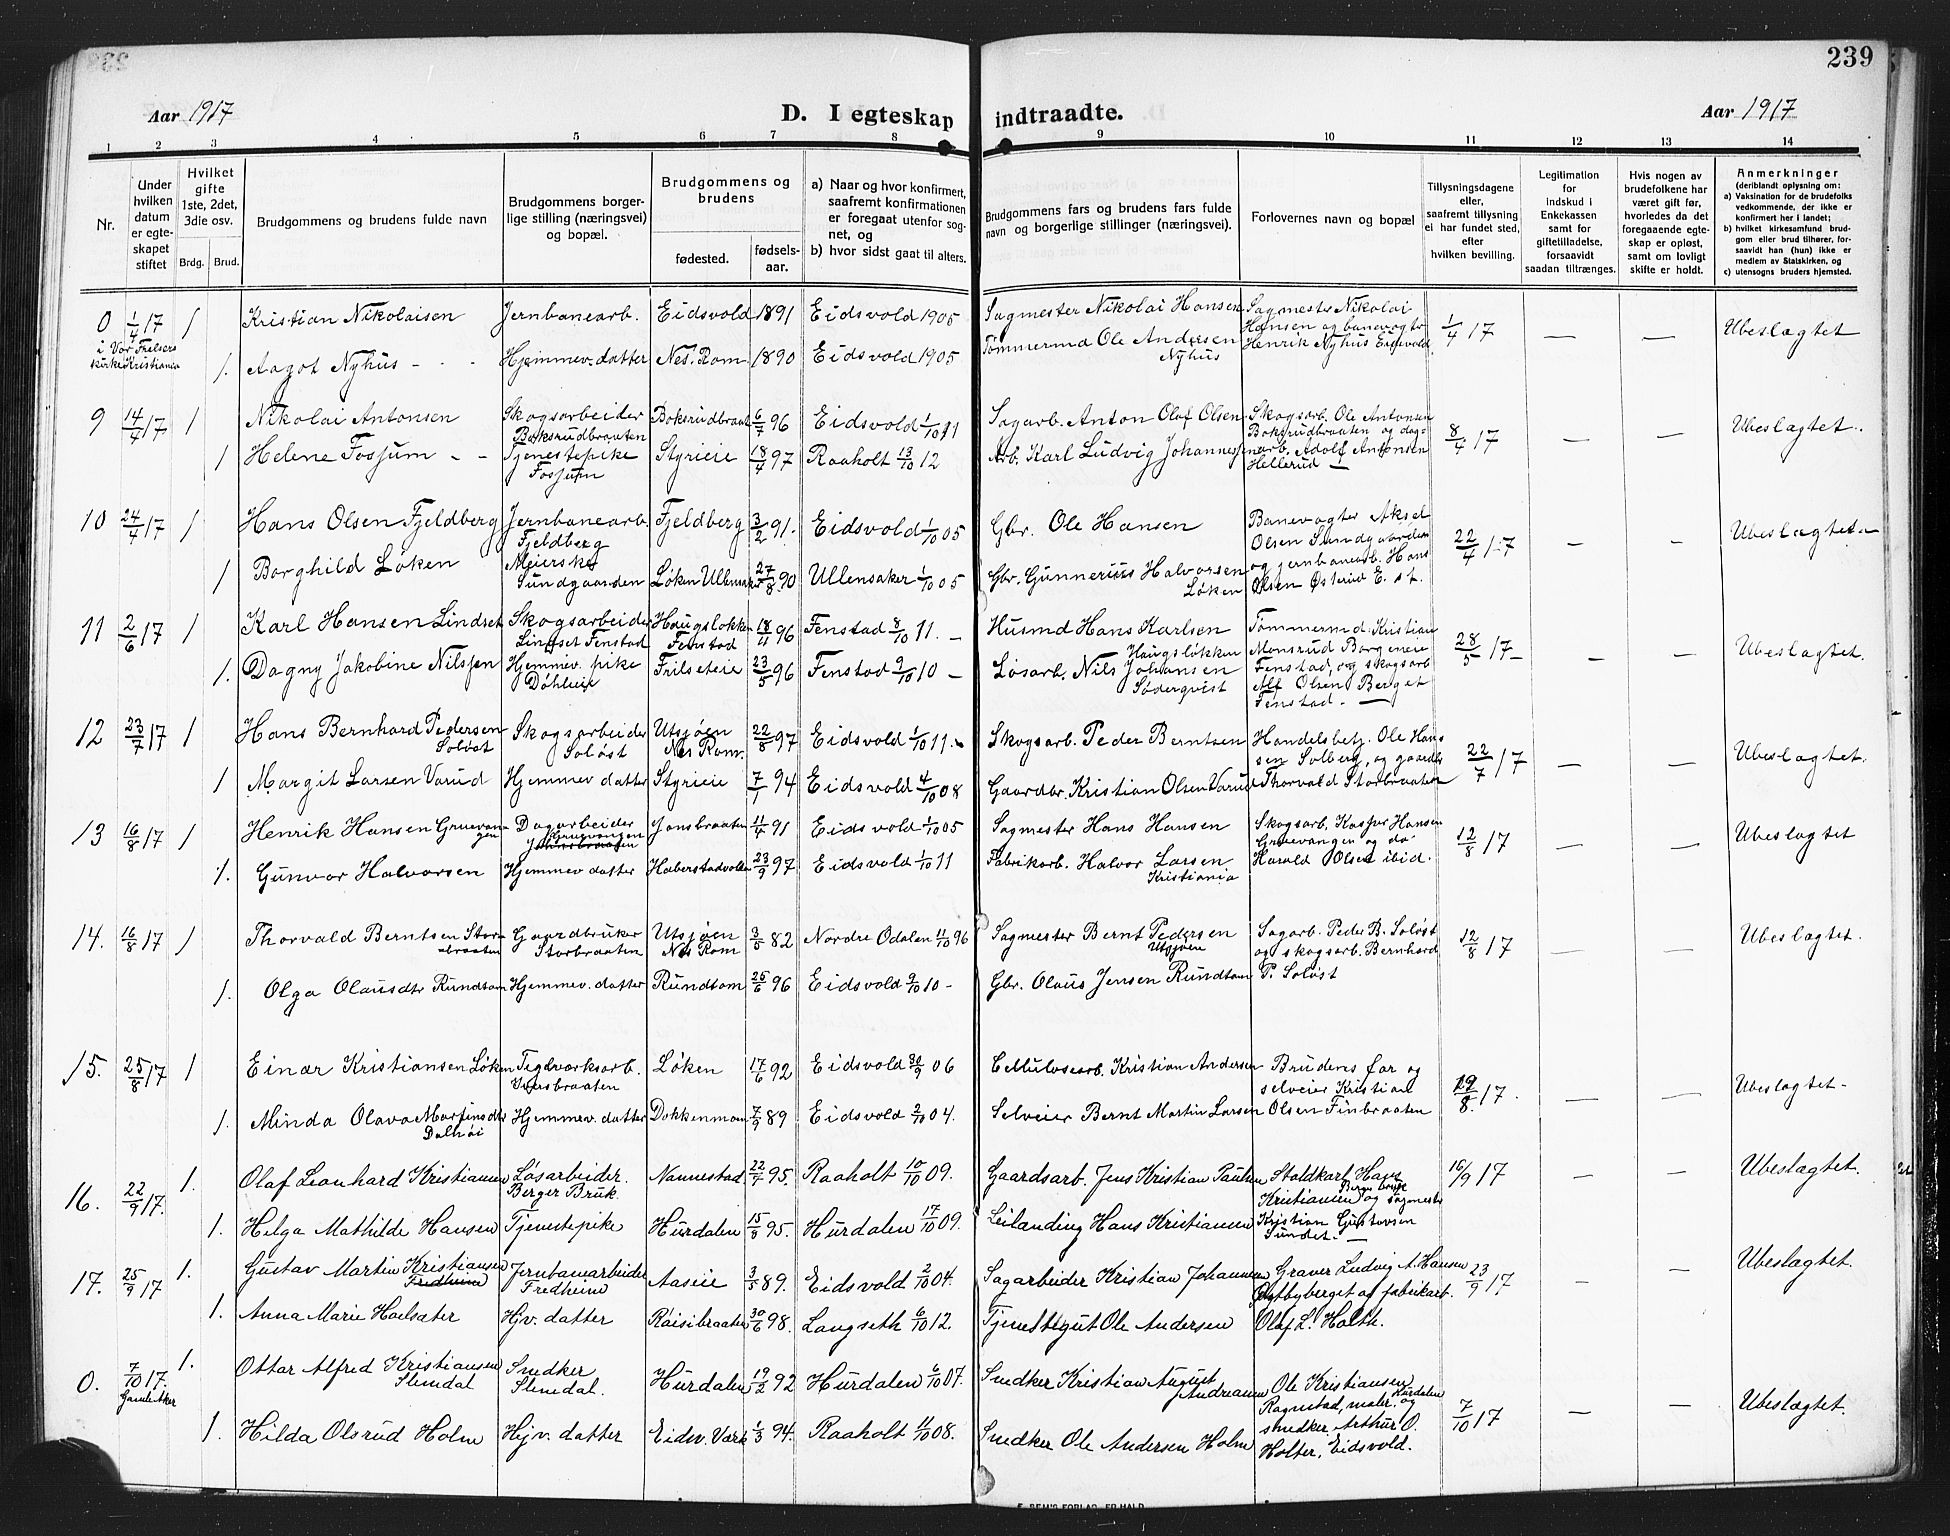 239
Aar 1917
D. I egteskap indtraadte.
Aar 1917
1 2 3 4 5 6 7 8 9 10 11 12 13 14
Nr.
Under hvilken datum er egteskapet stiftet
Hvilket gifte 1ste, 2det, 3die osv.
Brdg. Brud.
Brudgommens og brudens fulde navn
Brudgommens borgerlige stilling (næringsvei) og bopæl.
Brudgommens og brudens
fødested.
fødselsaar.
a) Naar og hvor konfirmert, saafremt konfirmationen er foregaat utenfor sognet, og
b) hvor sidst gaat til alters.
Brudgommens fars og brudens fars fulde navn og borgerlige stillinger (næringsvei).
Forlovernes navn og bopæl
Tillysningsdagene eller, saafremt tillysning ei har fundet sted, efter hvilken bevilling.
Legitimation for indskud i Enkekassen samt for giftetilladelse, forsaavidt saadan tiltrænges.
Hvis nogen av brudefolkene har været gift før, hvorledes da det foregaaende egteskap er opløst, samt om lovligt skifte er holdt.
Anmerkninger
(deriblandt oplysning om:
a) Vaksination for de brudefolks vedkommende, der ikke er konfirmert her i landet;
b) hvilket kirkesamfund brudgom eller brud tilhører, forsaavidt han (hun) ikke er medlem av Statskirken, og
c) utensogns bruders hjemsted.
0 1/4 17 1 Kristian Nikolaisen Jernbanearb. Eidsvold 1891 Eidsvold 1905 Sagmester Nikolai Hansen Sagmester Nikolai Hansen og banevogter Henrik Nyhus Eidsvold 1/4 17 — — Ubeslægtet
i Vor Frelsers kirke Kristiania
1. Aagot Nyhus - - Hjemmev. datter Nes. Rom. 1890 Eidsvold 1905 Tømmermd Ole Andersen Nyhus
9 14/4 17 1 Nikolai Antonsen Skogsarbeider Boksrudbraaten Boksrudbraat 6/7 96 Eidsvold 1/10 11 Sagarb. Anton Olaf Olsen Skogsarb. Ole Antonsen Boksrudbraaten og dagarb. Adolf Antonsen Hellerud — 8/4 17 — — Ubeslægtet.
1 Helene Fossum - - Tjenestepike Fossum Styrieie 18/4 97 Raaholt 13/10 12 Arb. Karl Ludvig Johannessen
10 24/4 17 1 Hans Olsen Fjeldberg Jernbanearb. Fjeldberg Fjeldberg 3/2 91. Eidsvold 1/10 05 Gbr. Ole Hansen Banevogter Aksel Olsen Sundgaarden og jernbanearb. Hans Olsen Østerud E. st. 22/4 17 — — Ubeslægtet
1 Borghild Løken Meierske Sundgaarden Løken Ullensaker 27/8 90 Ullensaker 1/10 05 Gbr. Gunnerius Halvorsen Løken
11 2/6 17 1 Karl Hansen Lindset Skogsarbeider Lindset Fenstad Haugsløkken Fenstad 18/11 96 Fenstad 8/10 11. — Husmd Hans Karlsen Haugsløkken Tømmermd. Kristian Monsrud Borgeneie Fenstad, og skogsarb Alf Olsen Berget Fenstad. — 28/5 17 — — Ubeslægtet.
1. Dagny Jakobine Nilssen Hjemmev. pike Døhleie Frilseteie 23/5 96 Fenstad 9/10 10 — Løsarb. Nils Johansen Søderqvist
12 23/7 17 1 Hans Bernhard Pedersen Soløst Skogsarbeider Soløst Utsjøen Nes Rom. 22/8 97 Eidsvold 1/10 11. Skogsarb. Peder Berntsen Handelsbetj. Ole Hansen Solberg, og gaardbr Thorvald Storbraaten 22/7 17 — — Ubeslægtet.
1 Margit Larsen Varud Hjemmev datter Styrieie 7/1 94 Eidsvold 4/10 08 Gaardbr. Kristian Olsen Varud
13 16/8 17 1 Henrik Hansen Gruevangen Dagarbeider Gruevangen Jonsbraaten 11/4 91 Eidsvold 1/10 05 Sagmester Hans Hansen Skogsarb. Kaspar Hansen Gruevangen og do Harald Olsen ibid. 12/8 17 — — Ubeslægtet
1. Gunvor Halvorsen Hjemmev datter Haberstadvolden 23/9 97 Eidsvold 1/10 11 Fabrikarb. Halvor Larsen Kristiania
14. 16/8 17 1 Thorvald Berntsen Storbraaten Gaardbruker Storbraaten Utsjøen Nes Rom 3/5 82 Nordre Odalen 11/10 96 Sagmester Bernt Pedersen Utsjøen Sagarb. Peder B. Soløst og skogsarb. Bernhard P. Soløst 12/8 17 — — Ubeslægtet.
1. Olga Olausdtr Rundtom Hjemmev. datter Rundtom 25/6 96 Eidsvold 9/10 10 - Gbr. Olaus Jensen Rundtom
15. 25/8 17 1 Einar Kristiansen Løken Teglverksarb. Iversbraaten Løken 17/6 92 Eidsvold 30/9 06 Cellulosearb. Kristian Andersen Brudens far og selveier Kristian Olsen Finbraaten 19/8 17. — — Ubeslægtet -
1. Minda Olava Martinsdtr Dalhøi Hjemmev. datter Dokkenmoen 7/9 89 Eidsvold 2/10 04. Selveier Bernt Martin Larsen
16. 22/9 17. 1. Olaf Leonhard Kristiansen Løsarbeider. Berger Bruk. Nannestad 22/7 95. Raaholt 10/10 09. Gaardsarb. Jens Kristian Paulsen Staldkarl Hans Kristiansen Berger bruk og sagmester Kristian Gustavsen Sundet. — 16/9 17 — — Ubeslægtet.
1. Helga Mathilde Hansen Tjenestepike Hurdalen 15/8 95. Hurdalen 17/10 09. Leilanding Hans Kristiansen
17. 25/9 17 1. Gustav Martin Kristiansen Fredheim Jernbanearbeider Fredheim Aaseie 3/5 89. Eidsvold 2/10 04. Sagarbeider Kristian Johannesen Graver Ludvig A. Hansen Østbyberget og fabrikarb. Olaf L. Holth. 23/9 17 — — Ubeslægtet.
1. Anna Marie Hoelsæter Hjv. datter Raisibraaten 30/6 98. Langseth 6/10 12. Tjenestegut Ole Andersen
0. 7/10 17. 1. Ottar Alfred Kristiansen Slemdal Snedker Slemdal. Hurdalen 19/2 92 Hurdalen 6/10 07. Snedker Kristian August Andreasen Ole Kristiansen Ragnstad, maler, Hurdalen og snedker Arthur O. Holter, Eidsvold. 7/10 17 — — Ubeslægtet.
Gamle Aker
1. Hilda Olsrud Holm Hjv. datter Eidsv. Værk 1/3 94. Raaholt 11/10 08. Snedker Ole Andersen Holm